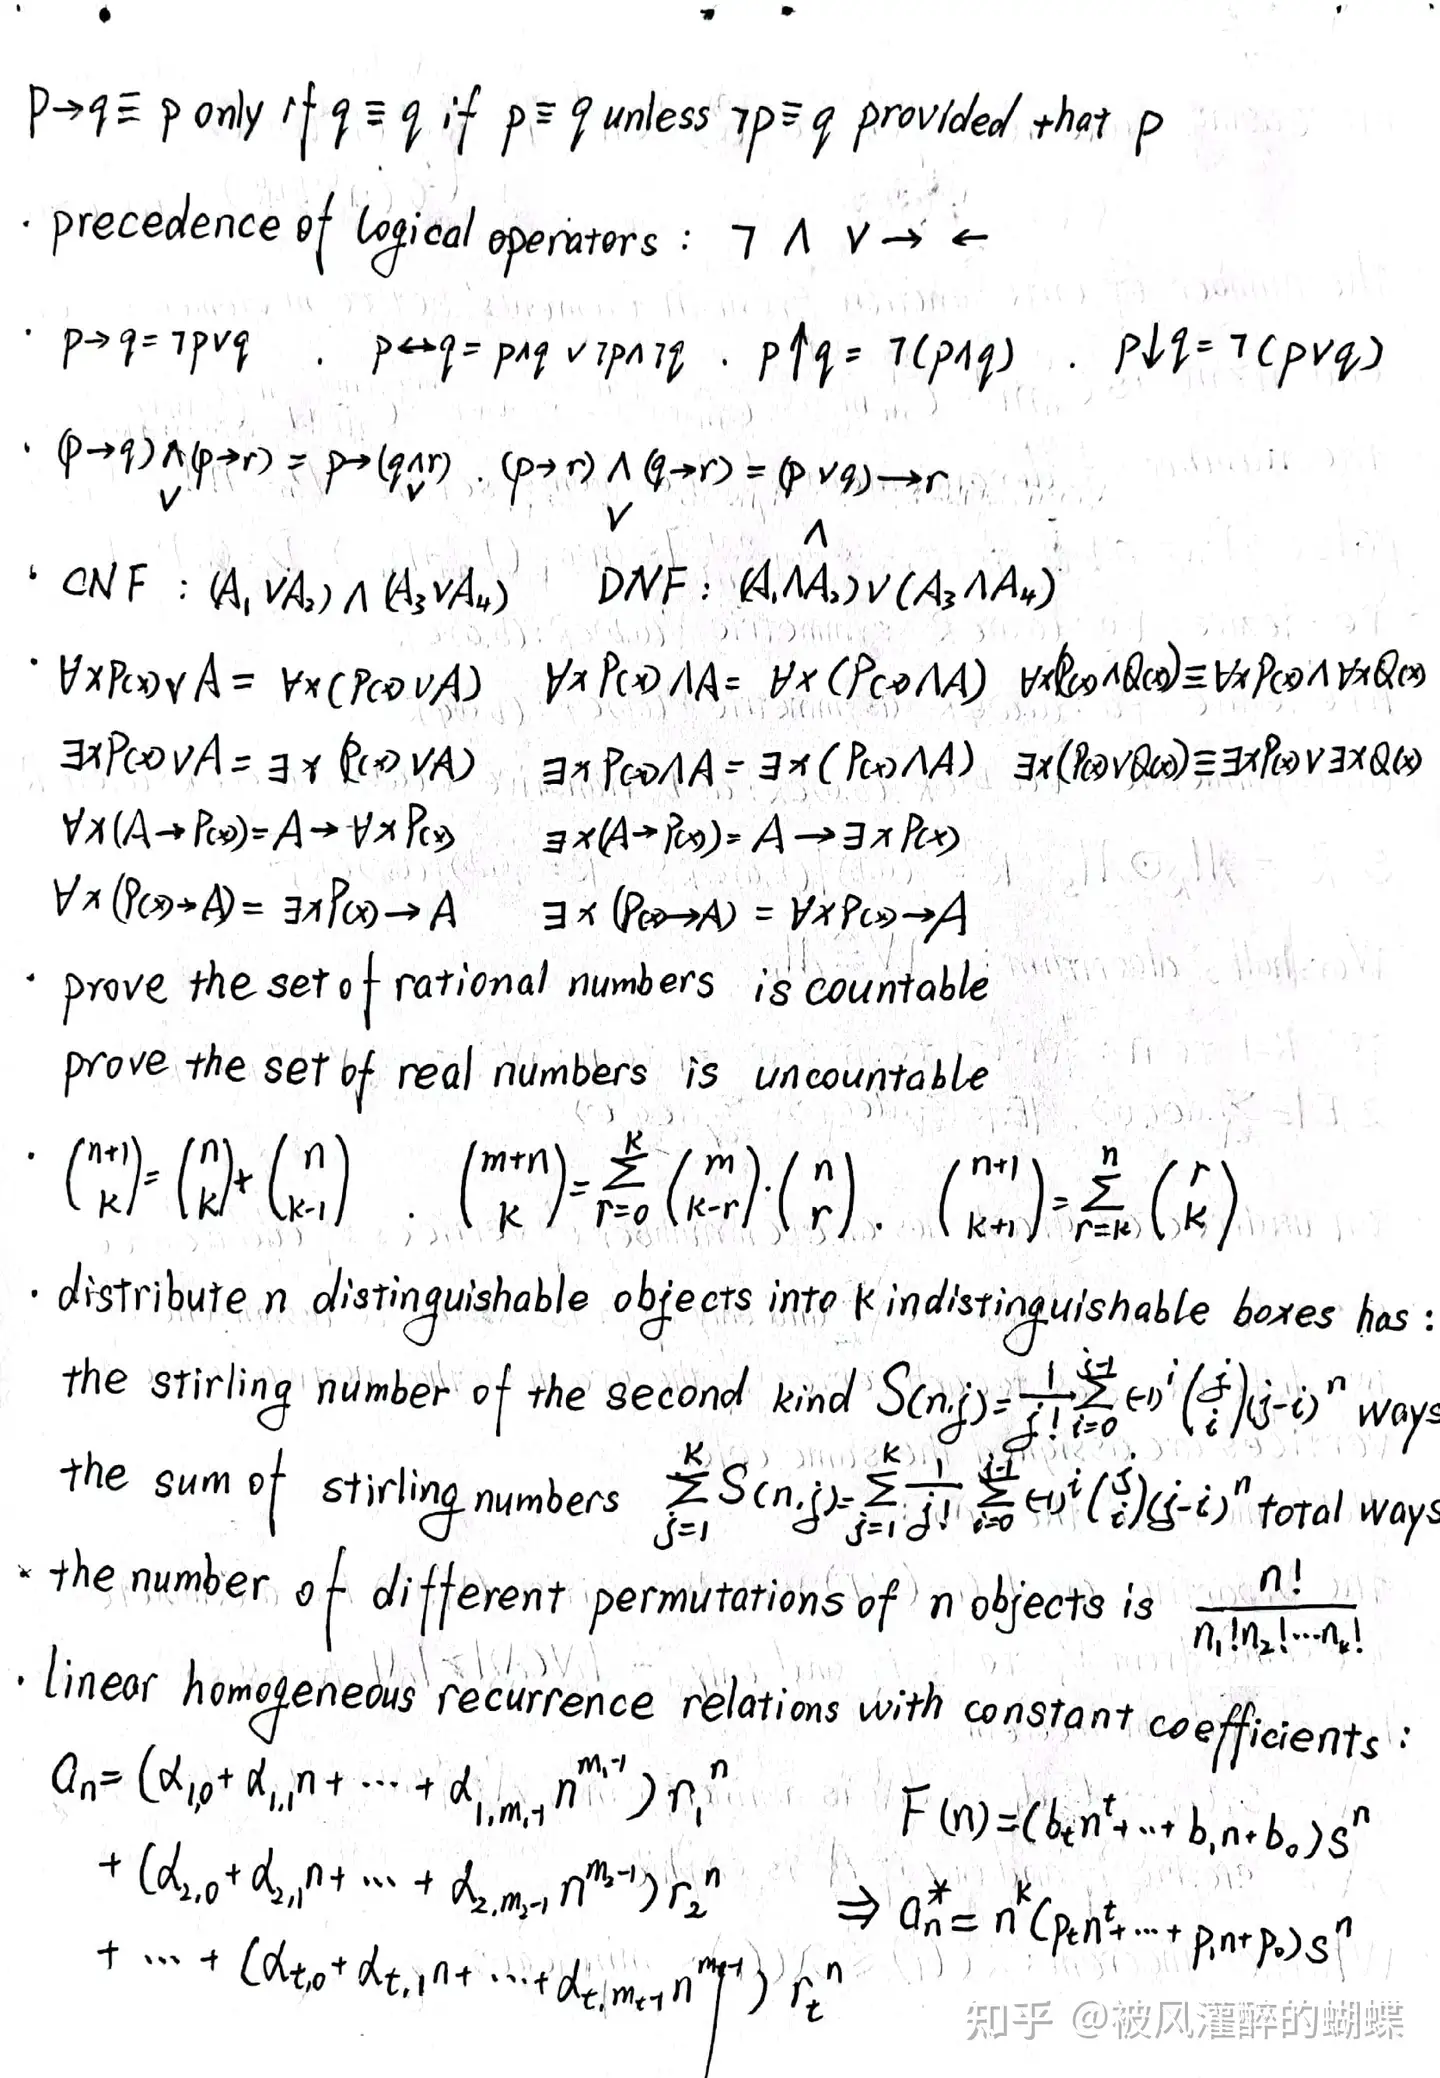 p→q≡ p only if q ≡ q if p ≡ q unless ¬p ≡ q provided that p
· precedence of logical operators : ¬ ∧ ∨ → ←
· p→q = ¬p∨q . p↔q = p∧q ∨ ¬p∧¬q . p↑q = ¬(p∧q) . p↓q = ¬(p∨q)
· (p→q)∧(p→r) = p→(q∧r) . (p→r) ∧ (q→r) = (p∨q)→r
∨ ∨ ∨ ∧
· CNF : (A₁∨A₂)∧(A₃∨A₄) DNF : (A₁∧A₂)∨(A₃∧A₄)
· ∀xP(x)∨A = ∀x(P(x)∨A) ∀xP(x)∧A = ∀x(P(x)∧A) ∀x(P(x)∧Q(x))≡∀xP(x)∧∀xQ(x)
∃xP(x)∨A = ∃x(P(x)∨A) ∃xP(x)∧A = ∃x(P(x)∧A) ∃x(P(x)∨Q(x))≡∃xP(x)∨∃xQ(x)
∀x(A→P(x)) = A→∀xP(x) ∃x(A→P(x)) = A→∃xP(x)
∀x(P(x)→A) = ∃xP(x)→A ∃x(P(x)→A) = ∀xP(x)→A
· prove the set of rational numbers is countable
prove the set of real numbers is uncountable
· (n+1 k) = (n k) + (n k-1) . (m+n k) = ∑_{r=0}^{k} (m k-r)·(n r) . (n+1 k+1) = ∑_{r=k}^{n} (r k)
· distribute n distinguishable objects into k indistinguishable boxes has :
the stirling number of the second kind S(n,j) = 1/j! ∑_{i=0}^{j-1} (-1)^i (j i)(j-i)^n ways
the sum of stirling numbers ∑_{j=1}^{k} S(n,j) = ∑_{j=1}^{k} 1/j! ∑_{i=0}^{j-1} (-1)^i (j i)(j-i)^n total ways
· the number of different permutations of n objects is n!/(n₁!n₂!···n_k!)
· linear homogeneous recurrence relations with constant coefficients :
a_n = (α_{1,0} + α_{1,1}n + ··· + α_{1,m₁-1} n^{m₁-1}) r₁^n F(n) = (b_t n^t + ··· + b₁n + b₀) s^n
+ (α_{2,0} + α_{2,1}n + ··· + α_{2,m₂-1} n^{m₂-1}) r₂^n ⇒ a_n^* = n^k (p_t n^t + ··· + p₁n + p₀) s^n
+ ··· + (α_{t,0} + α_{t,1}n + ··· + α_{t,m_t-1} n^{m_t-1}) r_t^n
知乎 @被风灌醉的蝴蝶